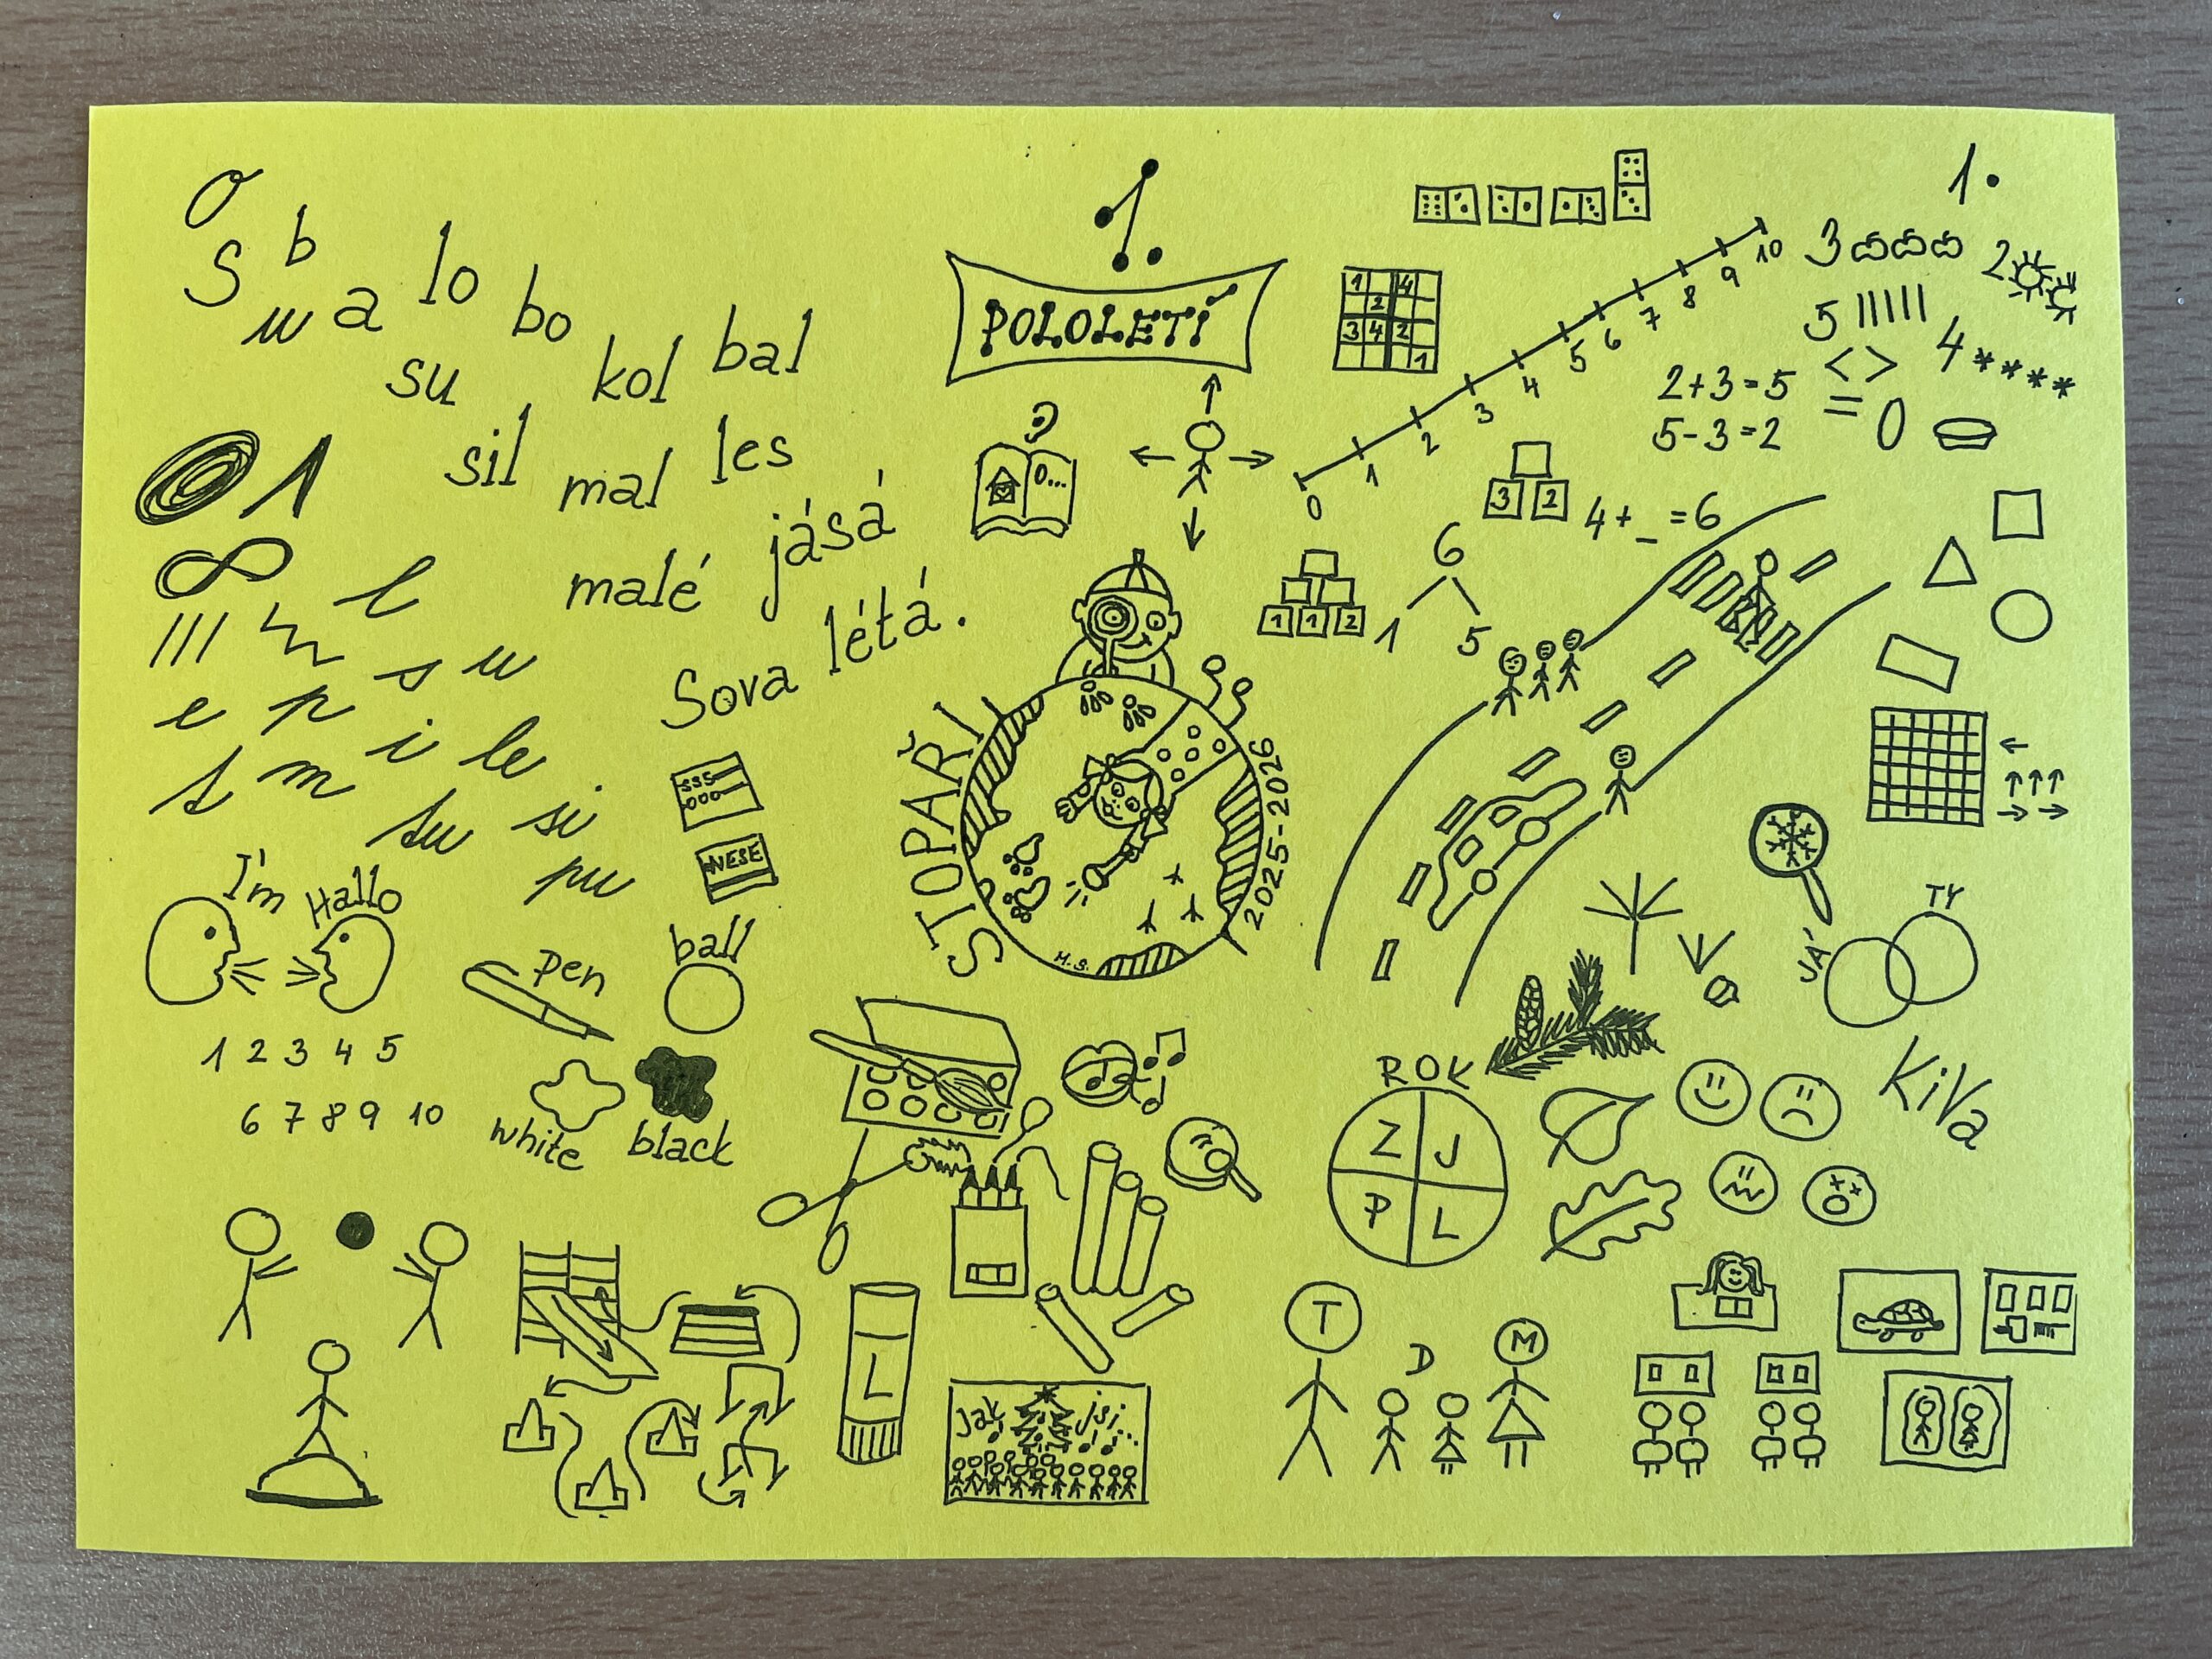 1.
1.
POLOLETÍ
o
s b u a lo bo
su kol bal
sil mal les
malé jásá
Sova létá.
1
l
e p s u
s m i le
su si
pu
sss
ooo
NESE
I'm Hallo
pen
ball
1 2 3 4 5
6 7 8 9 10
white black
1 4
2
3 4 2
1
O...
0 1 2 3 4 5 6 7 8 9 10
3 2
5 4
< >
= 0
2+3=5
5-3=2
3 2
4+_=6
1 1 2
6
1 5
STOPAŘI
2025-2026
M.S.
JÁ TY
KiVa
ROK
Z J
P L
L
Jak jsi...
T D M